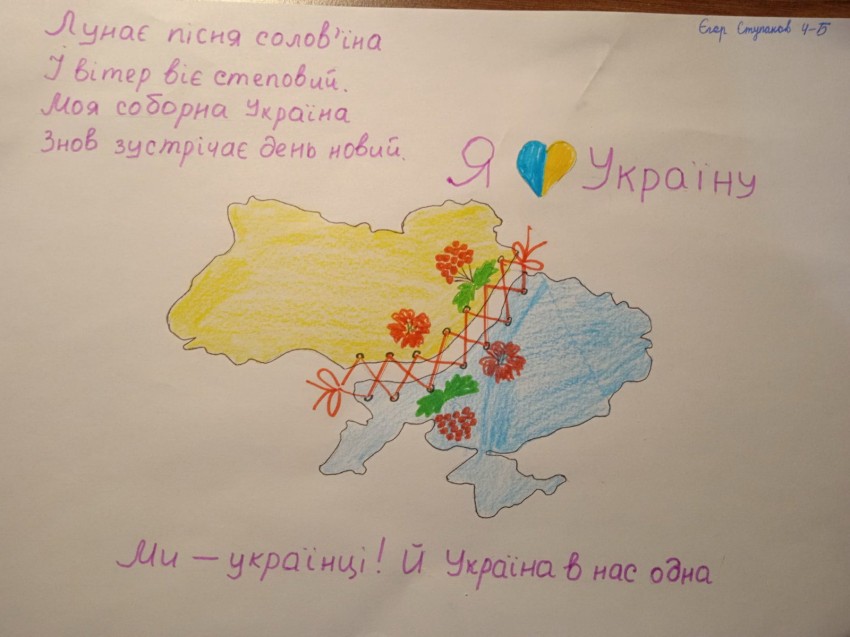 Лунає пісня солов'їна
І вітер віє степовий.
Моя соборна Україна
Знов зустрічає день новий.
Єгор Ступаков 4-Б
Я Україну
Ми – українці! Й Україна в нас одна